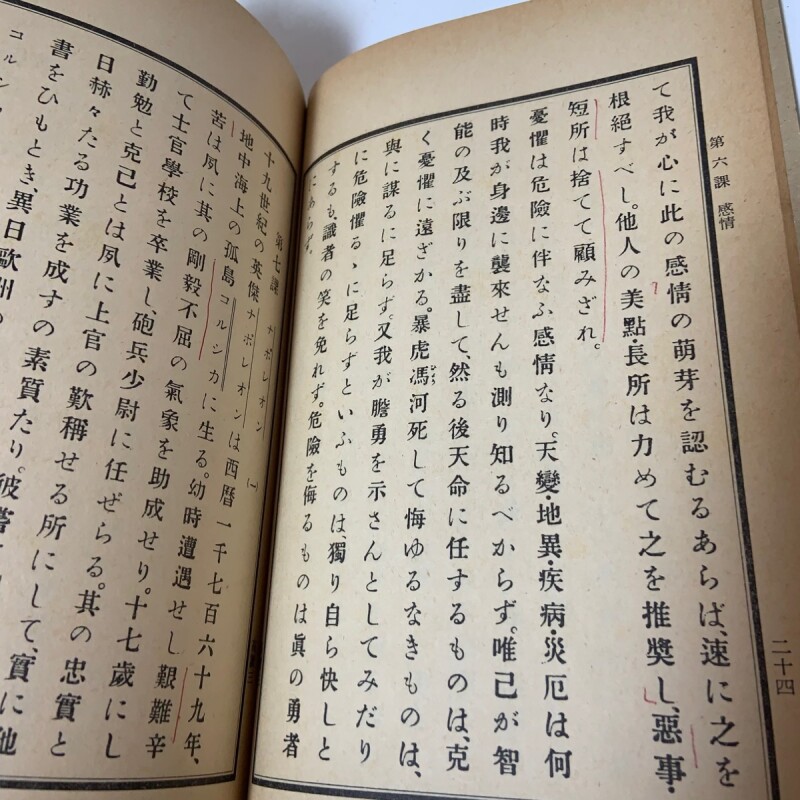 第六課 感情
二十四
て我が心に此の感情の萌芽を認むるあらば、速に之を
根絶すべし。他人の美點・長所は力めて之を推奬し、惡事・
短所は捨てて顧みざれ。
憂懼は危險に伴なふ感情なり。天變・地異・疾病・災厄は何
時我が身邊に襲來せんも測り知るべからず。唯己が智
能の及ぶ限りを盡して、然る後天命に任するものは、克
く憂懼に遠ざかる。暴虎馮河死して悔ゆるなきものは、
與に謀るに足らず。又我が膽勇を示さんとしてみだり
に危險懼るゝに足らずといふものは、獨り自ら快しと
するも、識者の笑を免れず。危險を侮るものは眞の勇者
にあらず。
第七課 ナポレオン (一)
十九世紀の英傑ナポレオンは西曆一千七百六十九年、
地中海上の孤島コルシカに生る。幼時遭遇せし艱難辛
苦は夙に其の剛毅不屈の氣象を助成せり。十七歲にし
て士官學校を卒業し、砲兵少尉に任ぜらる。其の忠實と
勤勉と克己とは夙に上官の歎稱せる所にして、實に他
日赫々たる功業を成すの素質たり。彼嘗
書をひもとき、異日歐洲
コルシカ